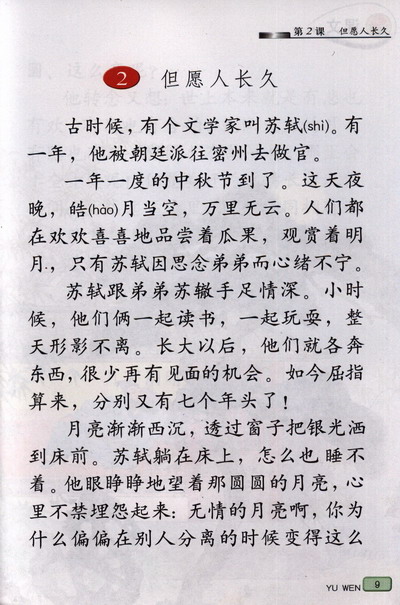 第2课 但愿人长久
2 但愿人长久
古时候，有个文学家叫苏轼(shì)。有
一年，他被朝廷派往密州去做官。
一年一度的中秋节到了。这天夜
晚，皓(hào)月当空，万里无云。人们都
在欢欢喜喜地品尝着瓜果，观赏着明
月，只有苏轼因思念弟弟而心绪不宁。
苏轼跟弟弟苏辙手足情深。小时
候，他们俩一起读书，一起玩耍，整
天形影不离。长大以后，他们就各奔
东西，很少再有见面的机会。如今屈指
算来，分别又有七个年头了！
月亮渐渐西沉，透过窗子把银光洒
到床前。苏轼躺在床上，怎么也睡不
着。他眼睁睁地望着那圆圆的月亮，心
里不禁埋怨起来：无情的月亮啊，你为
什么偏偏在别人分离的时候变得这么
YU WEN 9